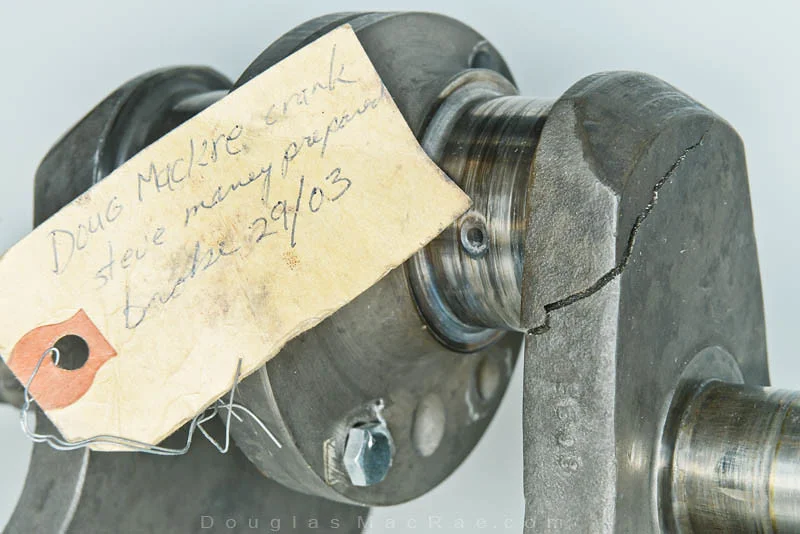 Doug Mackre crank
steve maney prepared
broke 29/03
DouglasMacRae.com